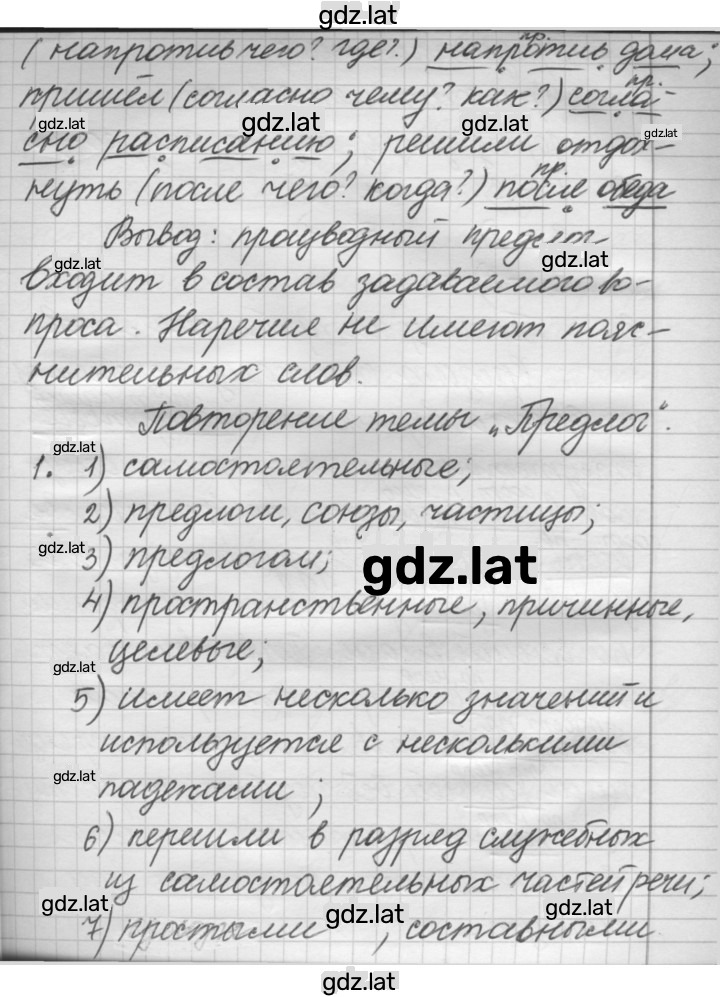 gdz.lat
(напротив чего? где?) напротив дома;
пр.
пришёл (согласно чему? как?) согла-
пр.
gdz.lat
gdz.lat
gdz.lat
сно расписанию; решили отдох-
нуть (после чего? когда?) после обеда
пр.
Вывод: производный предлог
gdz.lat
gdz.lat
входит в состав задаваемого во-
проса. Наречия не имеют пояс-
нительных слов.
Повторение темы „Предлог“.
gdz.lat
1. 1) самостоятельные;
2) предлоги, союзы, частицы;
gdz.lat
3) предлогом;
gdz.lat
4) пространственные, причинные,
целевые;
gdz.lat
5) имеет несколько значений и
используется с несколькими
gdz.lat
падежами;
6) перешли в разряд служебных
из самостоятельных частей речи;
gdz.lat
gdz.lat
gdz.lat
7) простыми, составными
gdz.lat